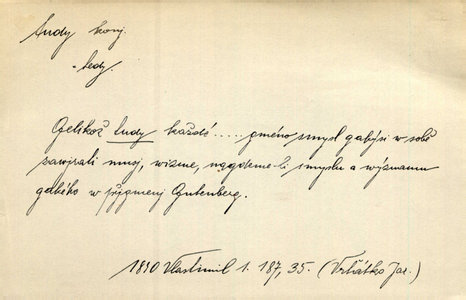 tudy konj.
- tedy.
Gelikož tudy každé ..... gméno smysl gakýsi w sobě
zawjrati musj, wizme, nagdeme-li smyslu a wýznamu
gakého w přigmenj Gutenberg.
1840 Vlastimil 1. 187, 35. (Vrťátko Jar.)